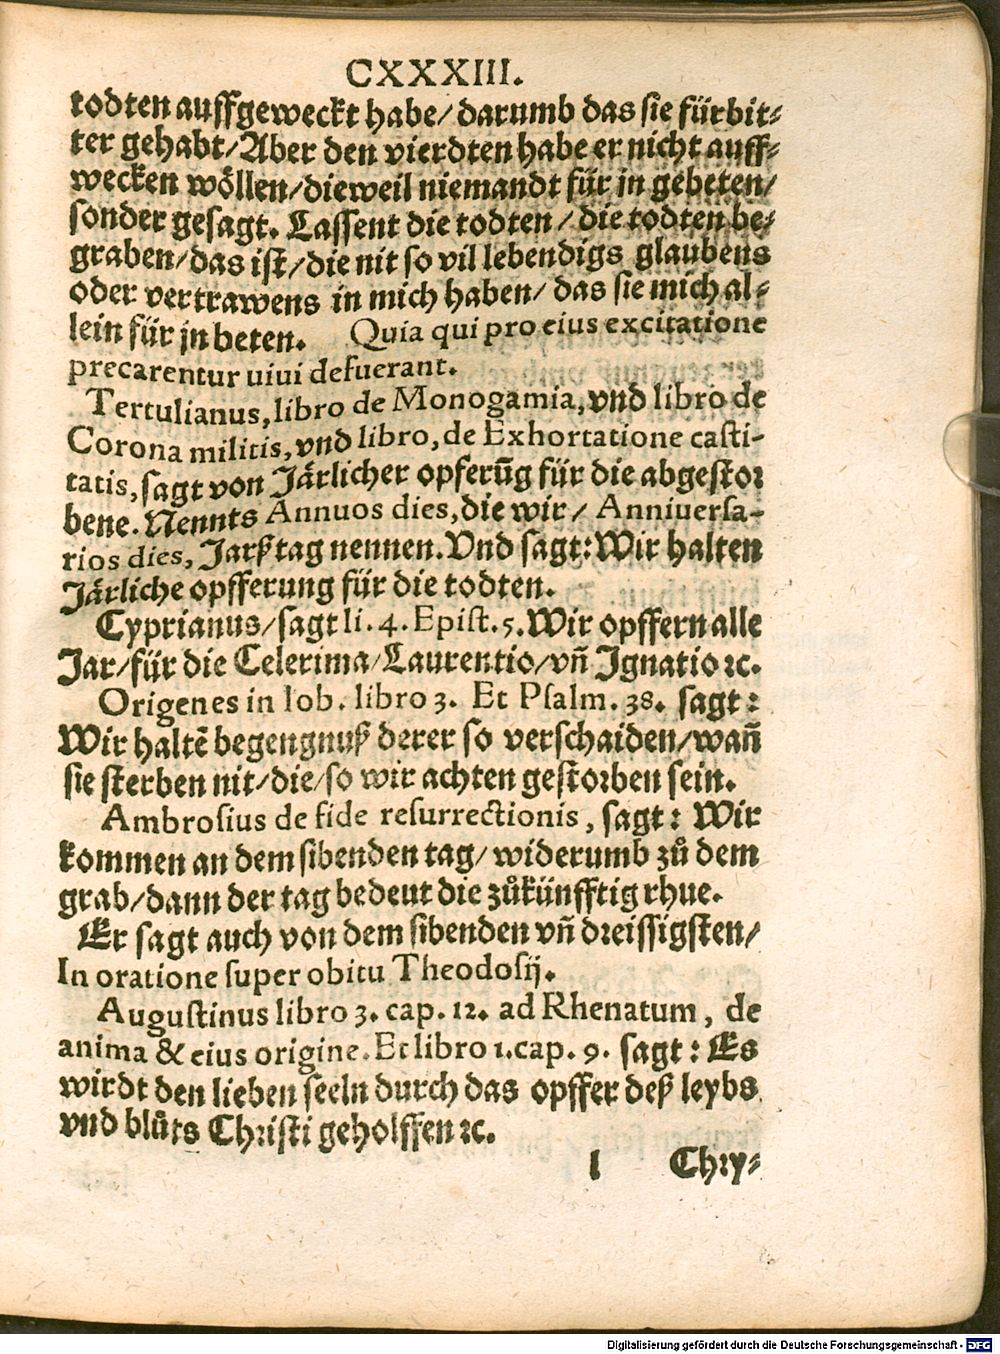 CXXXIII.
todten auffgeweckt habe/ darumb das sie fürbit⸗
ter gehabt/Aber den vierdten habe er nicht auff⸗
wecken wöllen/dieweil niemandt für in gebeten/
sonder gesagt. Lassent die todten / die todten be⸗
graben/das ist/die nit so vil lebendigs glaubens
oder vertrawens in mich haben/ das sie mich al⸗
lein für jn beten. Quia qui pro eius excitatione
precarentur uiui defuerant.
Tertulianus, libro de Monogamia, vnd libro de
Corona militis, vnd libro, de Exhortatione casti-
tatis, sagt von Järlicher opferūg für die abgestor
bene. Nennts Annuos dies, die wir/ Anniuersa-
rios dies, Jarßtag nennen. Vnd sagt: Wir halten
Järliche opfferung für die todten.
Cyprianus/sagt li. 4. Epist. 5. Wir opffern alle
Jar/für die Celerima/Laurentio/vñ Ignatio ꝛc.
Origenes in Iob. libro 3. Et Psalm. 38. sagt:
Wir haltē begengnuß derer so verschaiden/wañ
sie sterben nit/die/so wir achten gestorben sein.
Ambrosius de fide resurrectionis, sagt: Wir
kommen an dem sibenden tag/ widerumb zů dem
grab/dann der tag bedeut die zůkünfftig rhue.
Er sagt auch von dem sibenden vñ dreissigsten/
In oratione super obitu Theodosij.
Augustinus libro 3. cap. 12. ad Rhenatum, de
anima & eius origine. Et libro 1. cap. 9. sagt: Es
wirdt den lieben seeln durch das opffer deß leybs
vnd blůts Christi geholffen ꝛc.
l Chry⸗
Digitalisierung gefördert durch die Deutsche Forschungsgemeinschaft - DFG